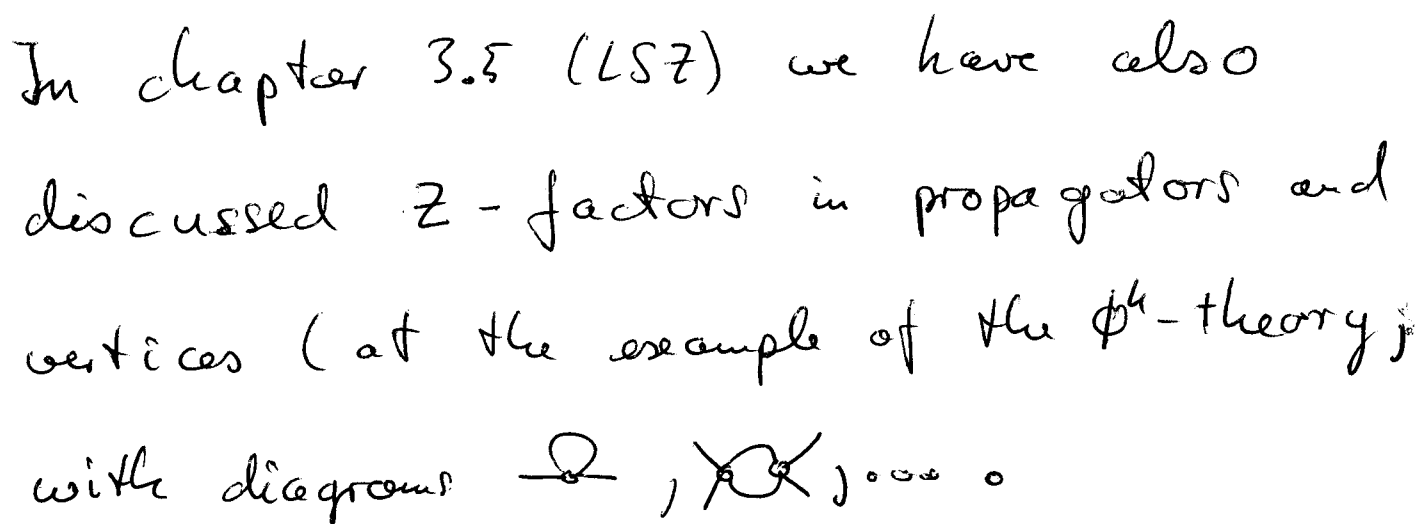 In chapter 3.5 (LSZ) we have also
discussed Z - factors in propagators and
vertices (at the example of the ϕ⁴-theory;
with diagrams , , .... .